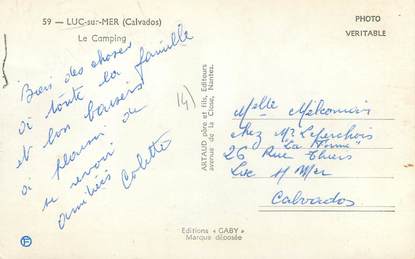 59 — LUC-sur-MER (Calvados)
Le Camping
PHOTO
VERITABLE
Bien des choses
à toute la famille
et bons baisers
à plaisir de
se revoir
amitiés Colette
14)
ARTAUD père et fils, Editeurs
avenue de la Close, Nantes.
Melle
chez Mr Leperchois
"La
26 Rue Thiers
Luc s/ Mer
Calvados
Editions « GABY »
Marque déposée
F